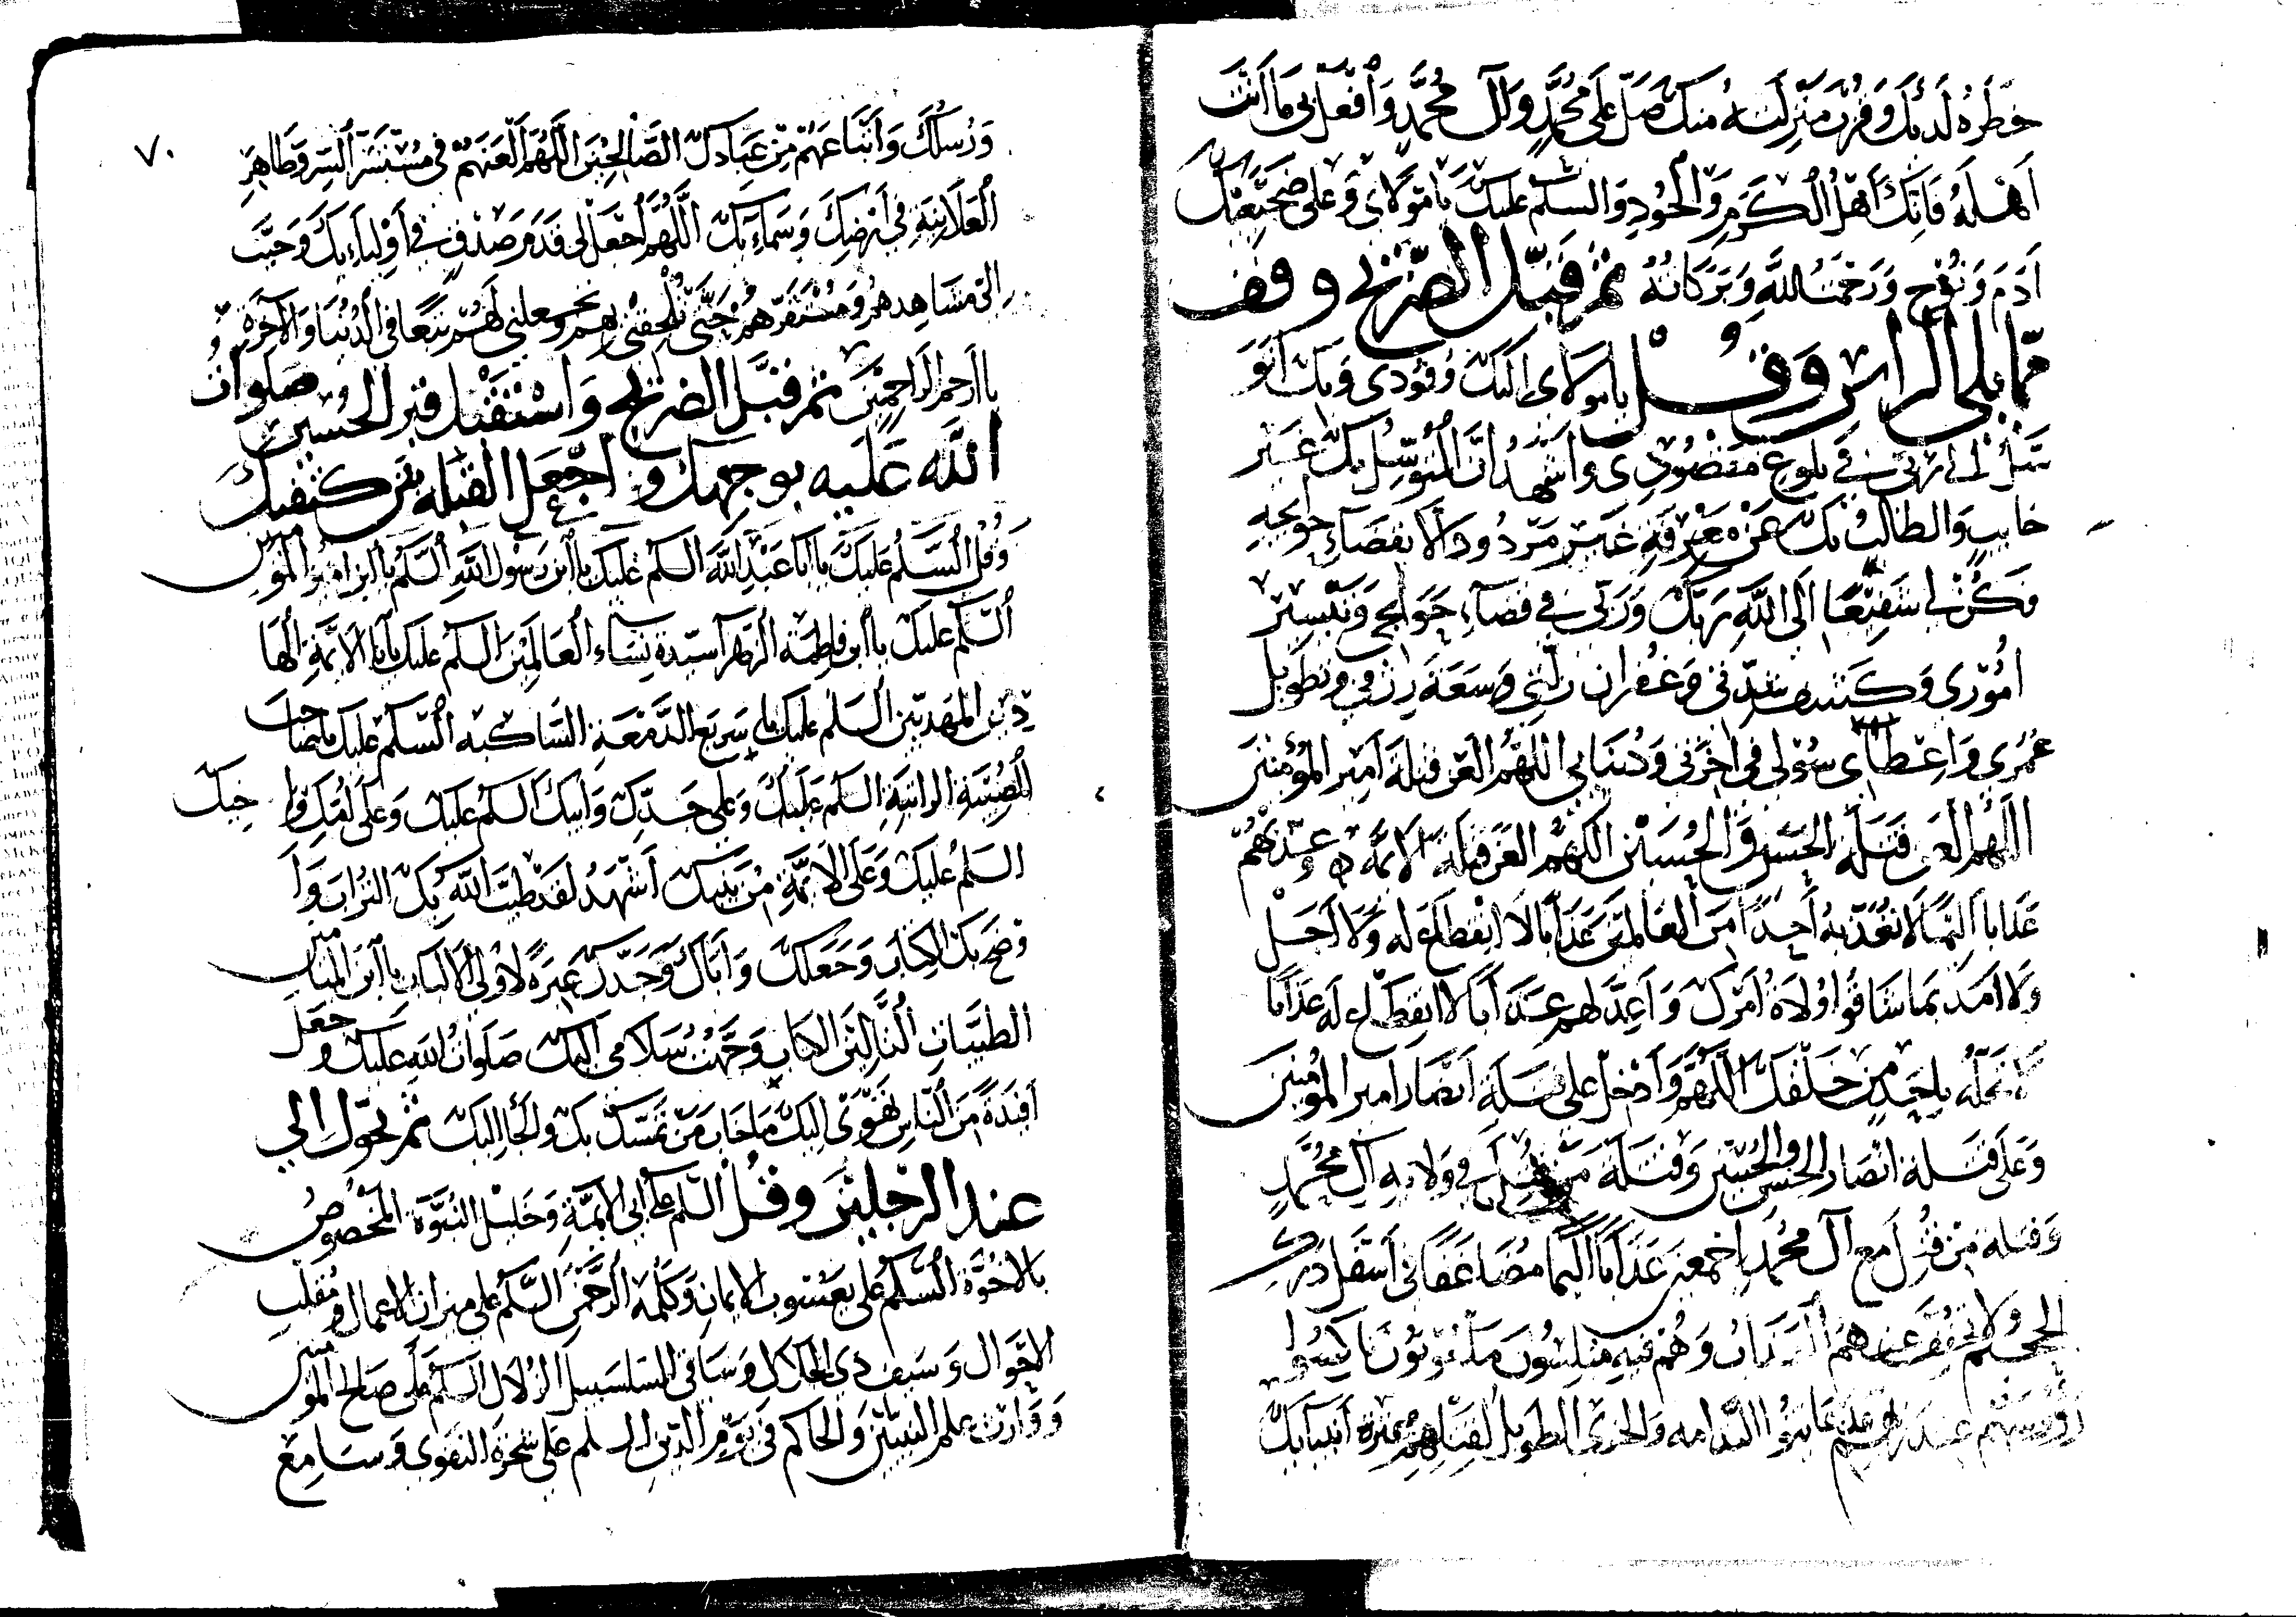 خطره لديك وقرب منزلته منك صل على محمد وآل محمد وافعل بي ما أنت
أهله فإنك أهل الكرم والجود والسلم عليك يا مولاي وعلى ضجيعيك
آدم ونوح ورحمت الله وبركاته ثم قبل الضريح وقف
مما يلي الراس وقل يا مولاي اليك وفودي وبك أتو
سل إلى ربي في بلوغ مقصودي وأشهد أن المتوسل بك غير
خايب والطالب بك عن معرفة غير مردود الا بقضاء حوايجه
فكن لي شفيعا إلى الله ربك وربي في قضاء حوايجي وتيسير
أموري وكشف شدتي وغفران زلتي وسعة رزقي وتطويل
عمري واعطاي سؤلي في آخرتي ودنياي اللهم العن قتلة أمير المؤمنين
اللهم العن قتلة الحسن والحسين اللهم العن قتلة الائمة وعذبهم
عذابا أليما لا تعذبه أحدا من العالمين عذابا لا انقطاع له ولا أجل
ولا أمد بما شاقوا ولاة أمرك وأعد لهم عذابا لا انقطاع له عذابا
لا تحله باحد من خلقك اللهم وادخل على قتلة انصار امير المؤمنين
وعلى قتلة انصار الحسن والحسين وقتلة من قتل في ولاية آل محمد
وقتلة من قتل مع آل محمد اجمعين عذابا أليما مضاعفا في أسفل درك
الجحيم ولا تخفف عنهم العذاب وهم فيه مبلسون ملعونون ناكسوا
رؤوسهم عند ربهم قد عاينوا الندامة والخزي الطويل لقتلهم عترة أنبيائك
٧٠
ورسلك وأتباعهم من عبادك الصالحين اللهم العنهم في مستسر السر وظاهر
العلانية في أرضك وسمائك اللهم اجعل لي قدم صدق في أوليائك وحبب
إلي مشاهدهم ومستقرهم حتى تلحقني بهم وتجعلني لهم تبعا في الدنيا والآخرة
يا أرحم الراحمين ثم قبل الضريح واستقبل قبر الحسين صلوات
الله عليه بوجهك واجعل القبلة بين كتفيك
وقل السلم عليك يا أبا عبد الله السلم عليك يا ابن رسول الله السلم يا ابن أمير المؤمنين
السلم عليك يا ابن فاطمة الزهرا سيدة نساء العالمين السلم عليك يا أبا الائمة الها
دين المهديين السلم عليك يا سريع الدمعة الساكبة السلم عليك يا صاحب
المصيبة الراتبة السلم عليك وعلى جدك وابيك السلم عليك وعلى أمك وا خيك
السلم عليك وعلى الائمة من بنيك أشهد لقد طيب الله بك التراب وأ
وضح بك الكتاب وجعلك وأباك وجدك عبرة لأولي الألباب يا ابن الميامين
الطيبات التالين الكتاب وجهت سلامي اليك صلوات الله عليك وجعل
افئدة من الناس تهوي إليك ما خاب من تمسك بك ولجأ اليك ثم تحول الى
عند الرجلين وقل السلم على أبي الأئمة وخليل النبوة المخصوص
بالاخوة السلم على يعسوب الايمان وكلمة الرحمن السلم على ميزان الاعمال ومقلب
الاحوال وسيف ذي الجلال وساقي السلسبيل الزلال السلم على صالح المؤمنين
ووارث علم النبيين والحاكم في يوم الدين السلم على شجرة التقوى وسامع